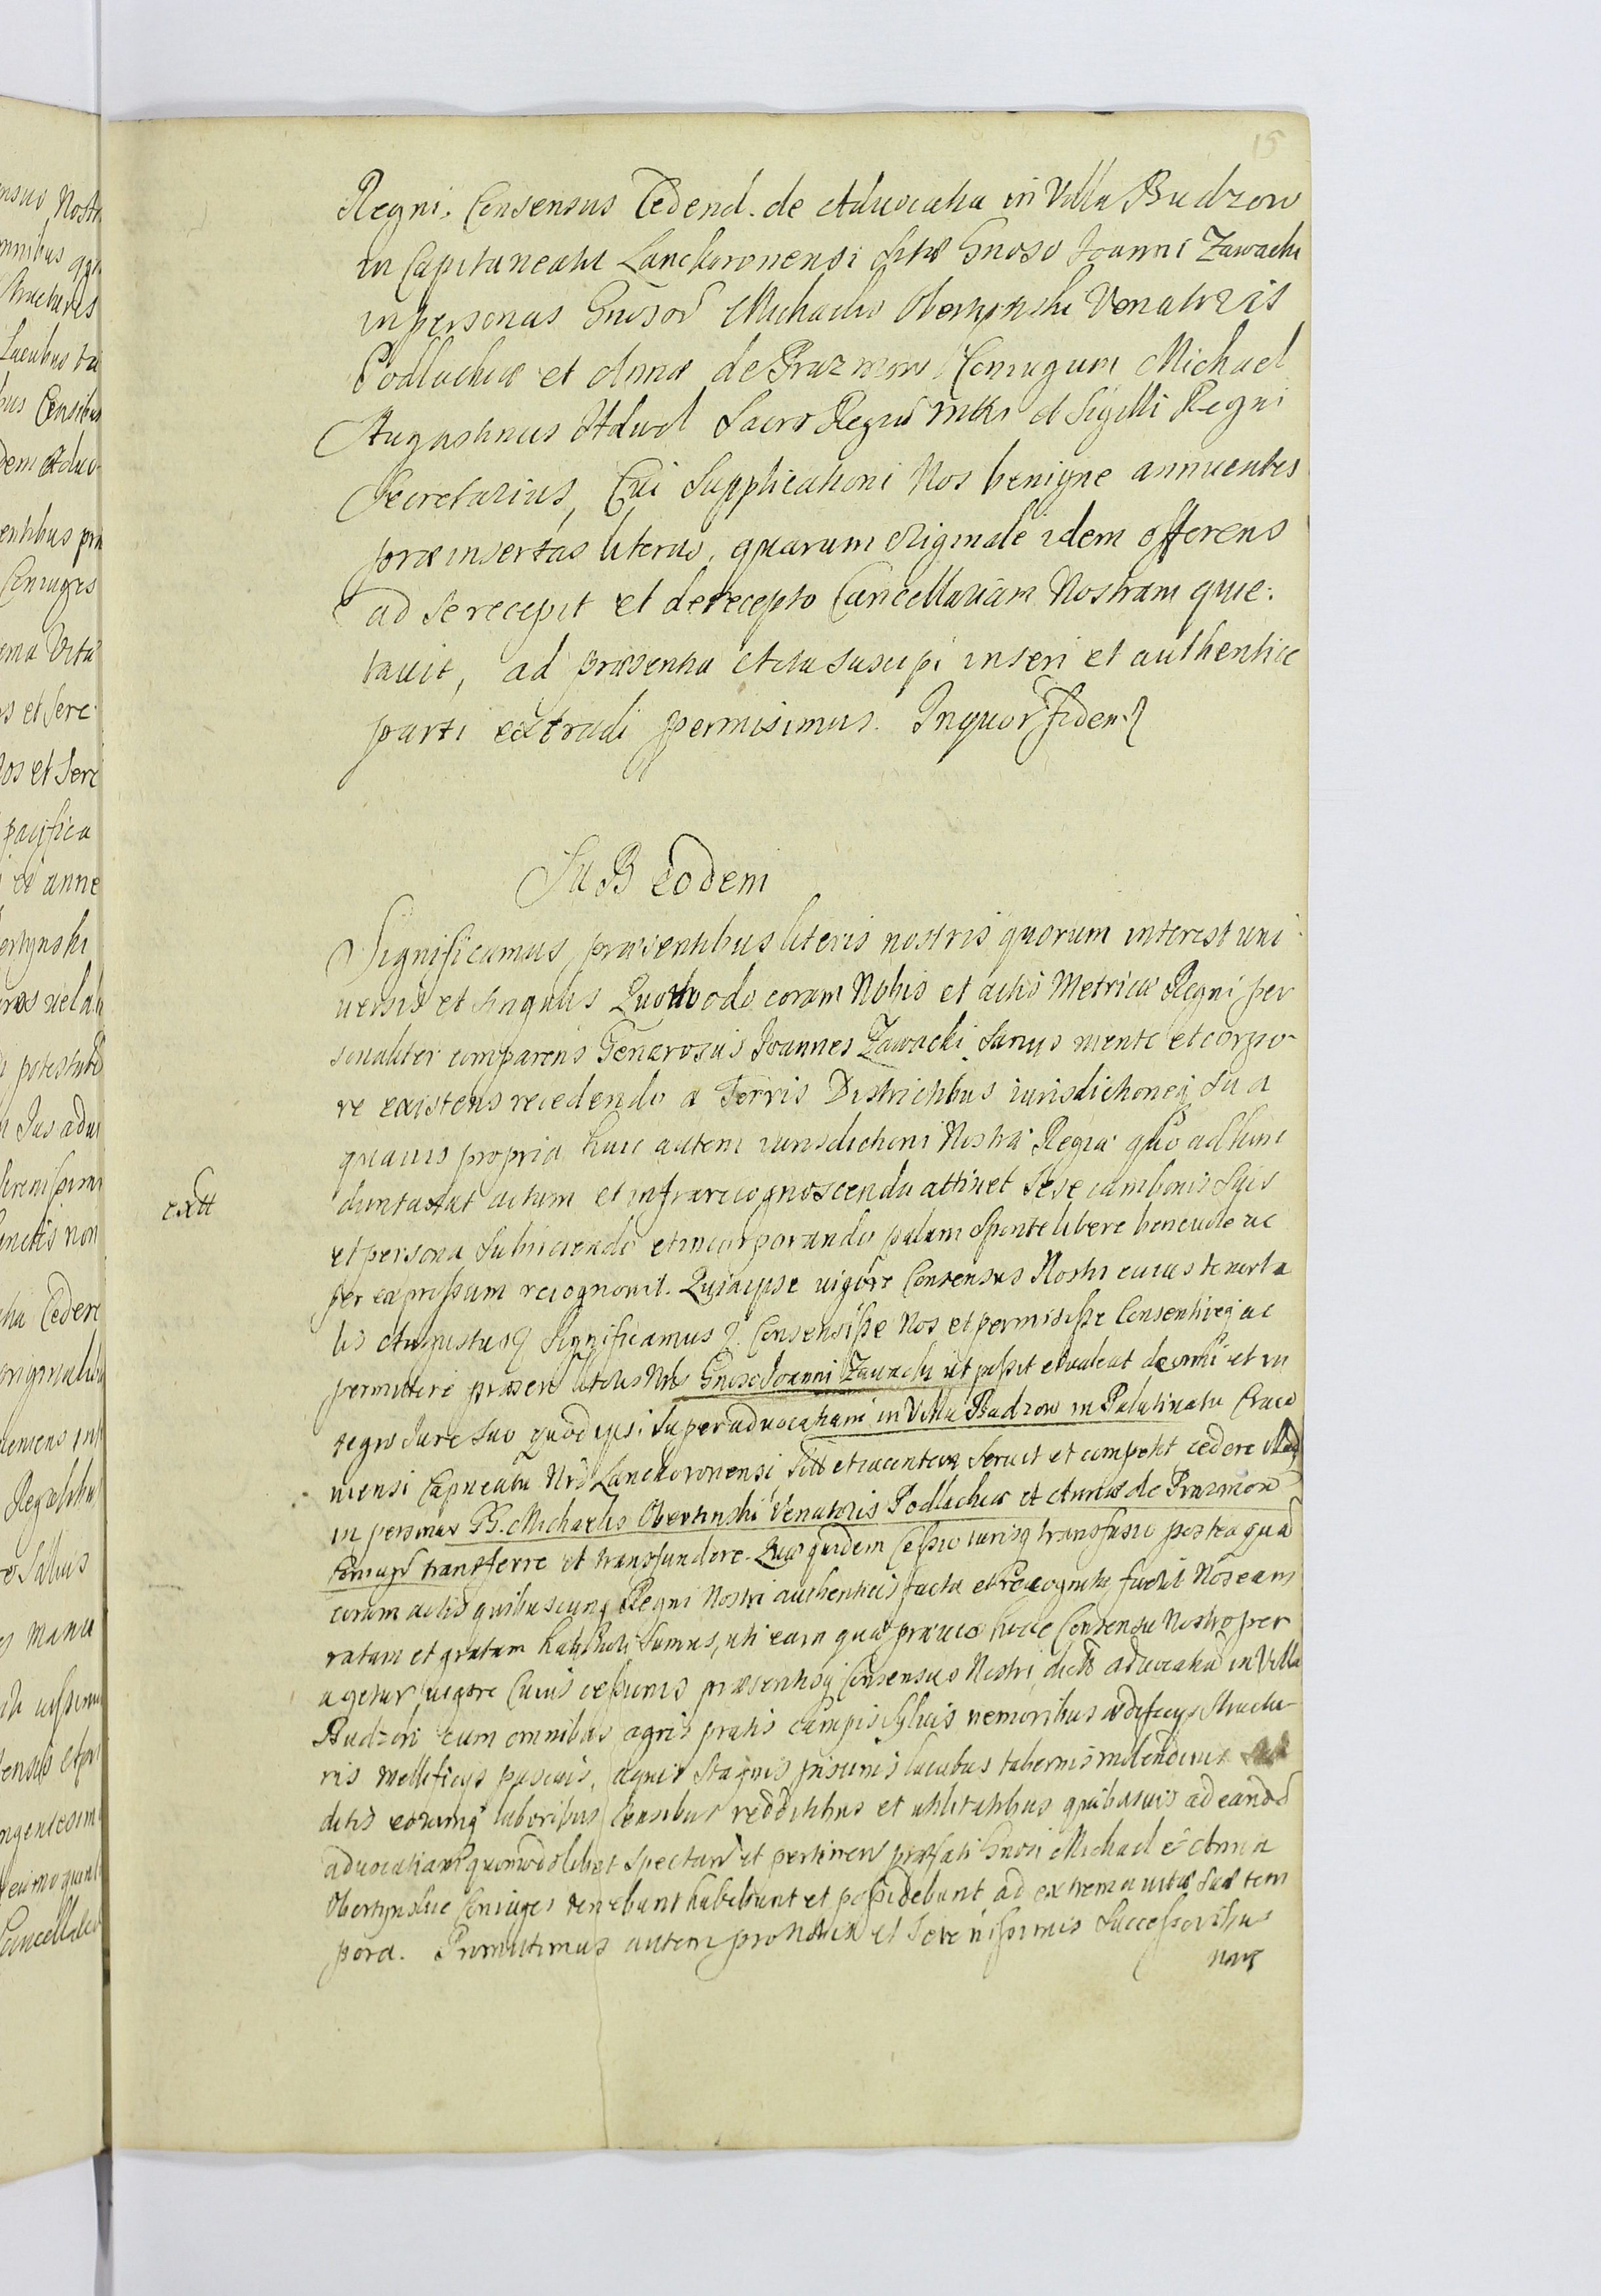 15
Regni. Consensus Cedend. de Aduocatia in Villa Budzow
in Capitaneatu Lanckoronensi sitæ Gnoso Joanni Zawacki
in personas Gnosor Michaelis Obertynski Venatoris
Podlachiæ et Annæ de Prazmow Coniugum Michael
Augustinus Hduel Sacræ Regiæ Mttis et Sigilli Regni
Secretarius, Cui Supplicationi Nos benigne annuentes
præinsertas literas, quarum originale idem offerens
ad se recepit et de recepto Cancellariam Nostram quie-
tauit, ad præsentia Acta suscipi inseri et authentice
parti extradi permisimus. In quor fidem
Sub eodem
Significamus præsentibus literis nostris quorum interest uni
uersis et singulis Quomodo coram Nobis et actis Metricæ Regni per
sonaliter comparens Generosus Joannes Zawacki sanus mente et corpo-
re existens recedendo a Terris Districtibus iurisdictioneq sua
quauis propria huic autem iurisdictioni Nostræ Regiæ quo ad hunc
duntaxat actum et infrarecognoscenda attinet sese cum bonis suis
extt
et persona subiiciendo et incorporando palam sponte libere beneuole ac
per expressum recognouit. Quia ipse uigore Consensus Nostri cuius tenor ta
lis Augustus Significamus Consensisse Nos et permisisse Consentireq ac
permittere præsen literis Nris Gnoso Joanni Zawacki ut possit et ualeat de omni et in
tegro Jure suo quod ipsi super aduocatiam in Villa Budzow in Palatinatu Craco
uiensi Capneatu Nro Lanckoronensi sitæ et iacentem seruit et competit cedere illudq
in personas GG. Michaelis Obertinski Venatoris Podlachiæ et Annæ de Prazmow
Coniugu transferre et transfundere. Quæ quidem cessio iurisq transfusio postea quam
coram actis quibuscunq Regni Nostri authenticis facta et recognita fuerit Nos eam
ratam et gratam habituri sumus, uti eam quæ præuio hocce Consensu Nostro per
agetur, uigore Cuius cessionis præsentisq Consensus Nostri dictæ aduocatiæ in Villa
Budzow cum omnibus agris pratis campis syluis nemoribus ædificys structu-
ris mellificys pascuis, aquis stagnis piscinis lacubus tabernis molendinis
ditis eorumq laboribus Censibus redditibus et utilitatibus quibusuis ad eandem
aduocatiam quomodolibet spectan et pertinen præfati Gnosi Michael et Anna
Obertynskie Coniuges tenebunt habebunt et possidebunt ad extrema uitæ suæ tem
pora. Promittimus autem pro Nobis et Serenissimis Successoribus
nris